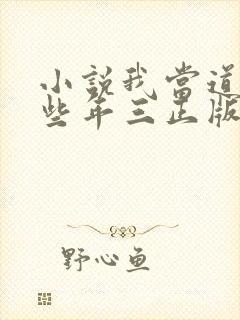 小說我當道
些年三正版
野心鱼